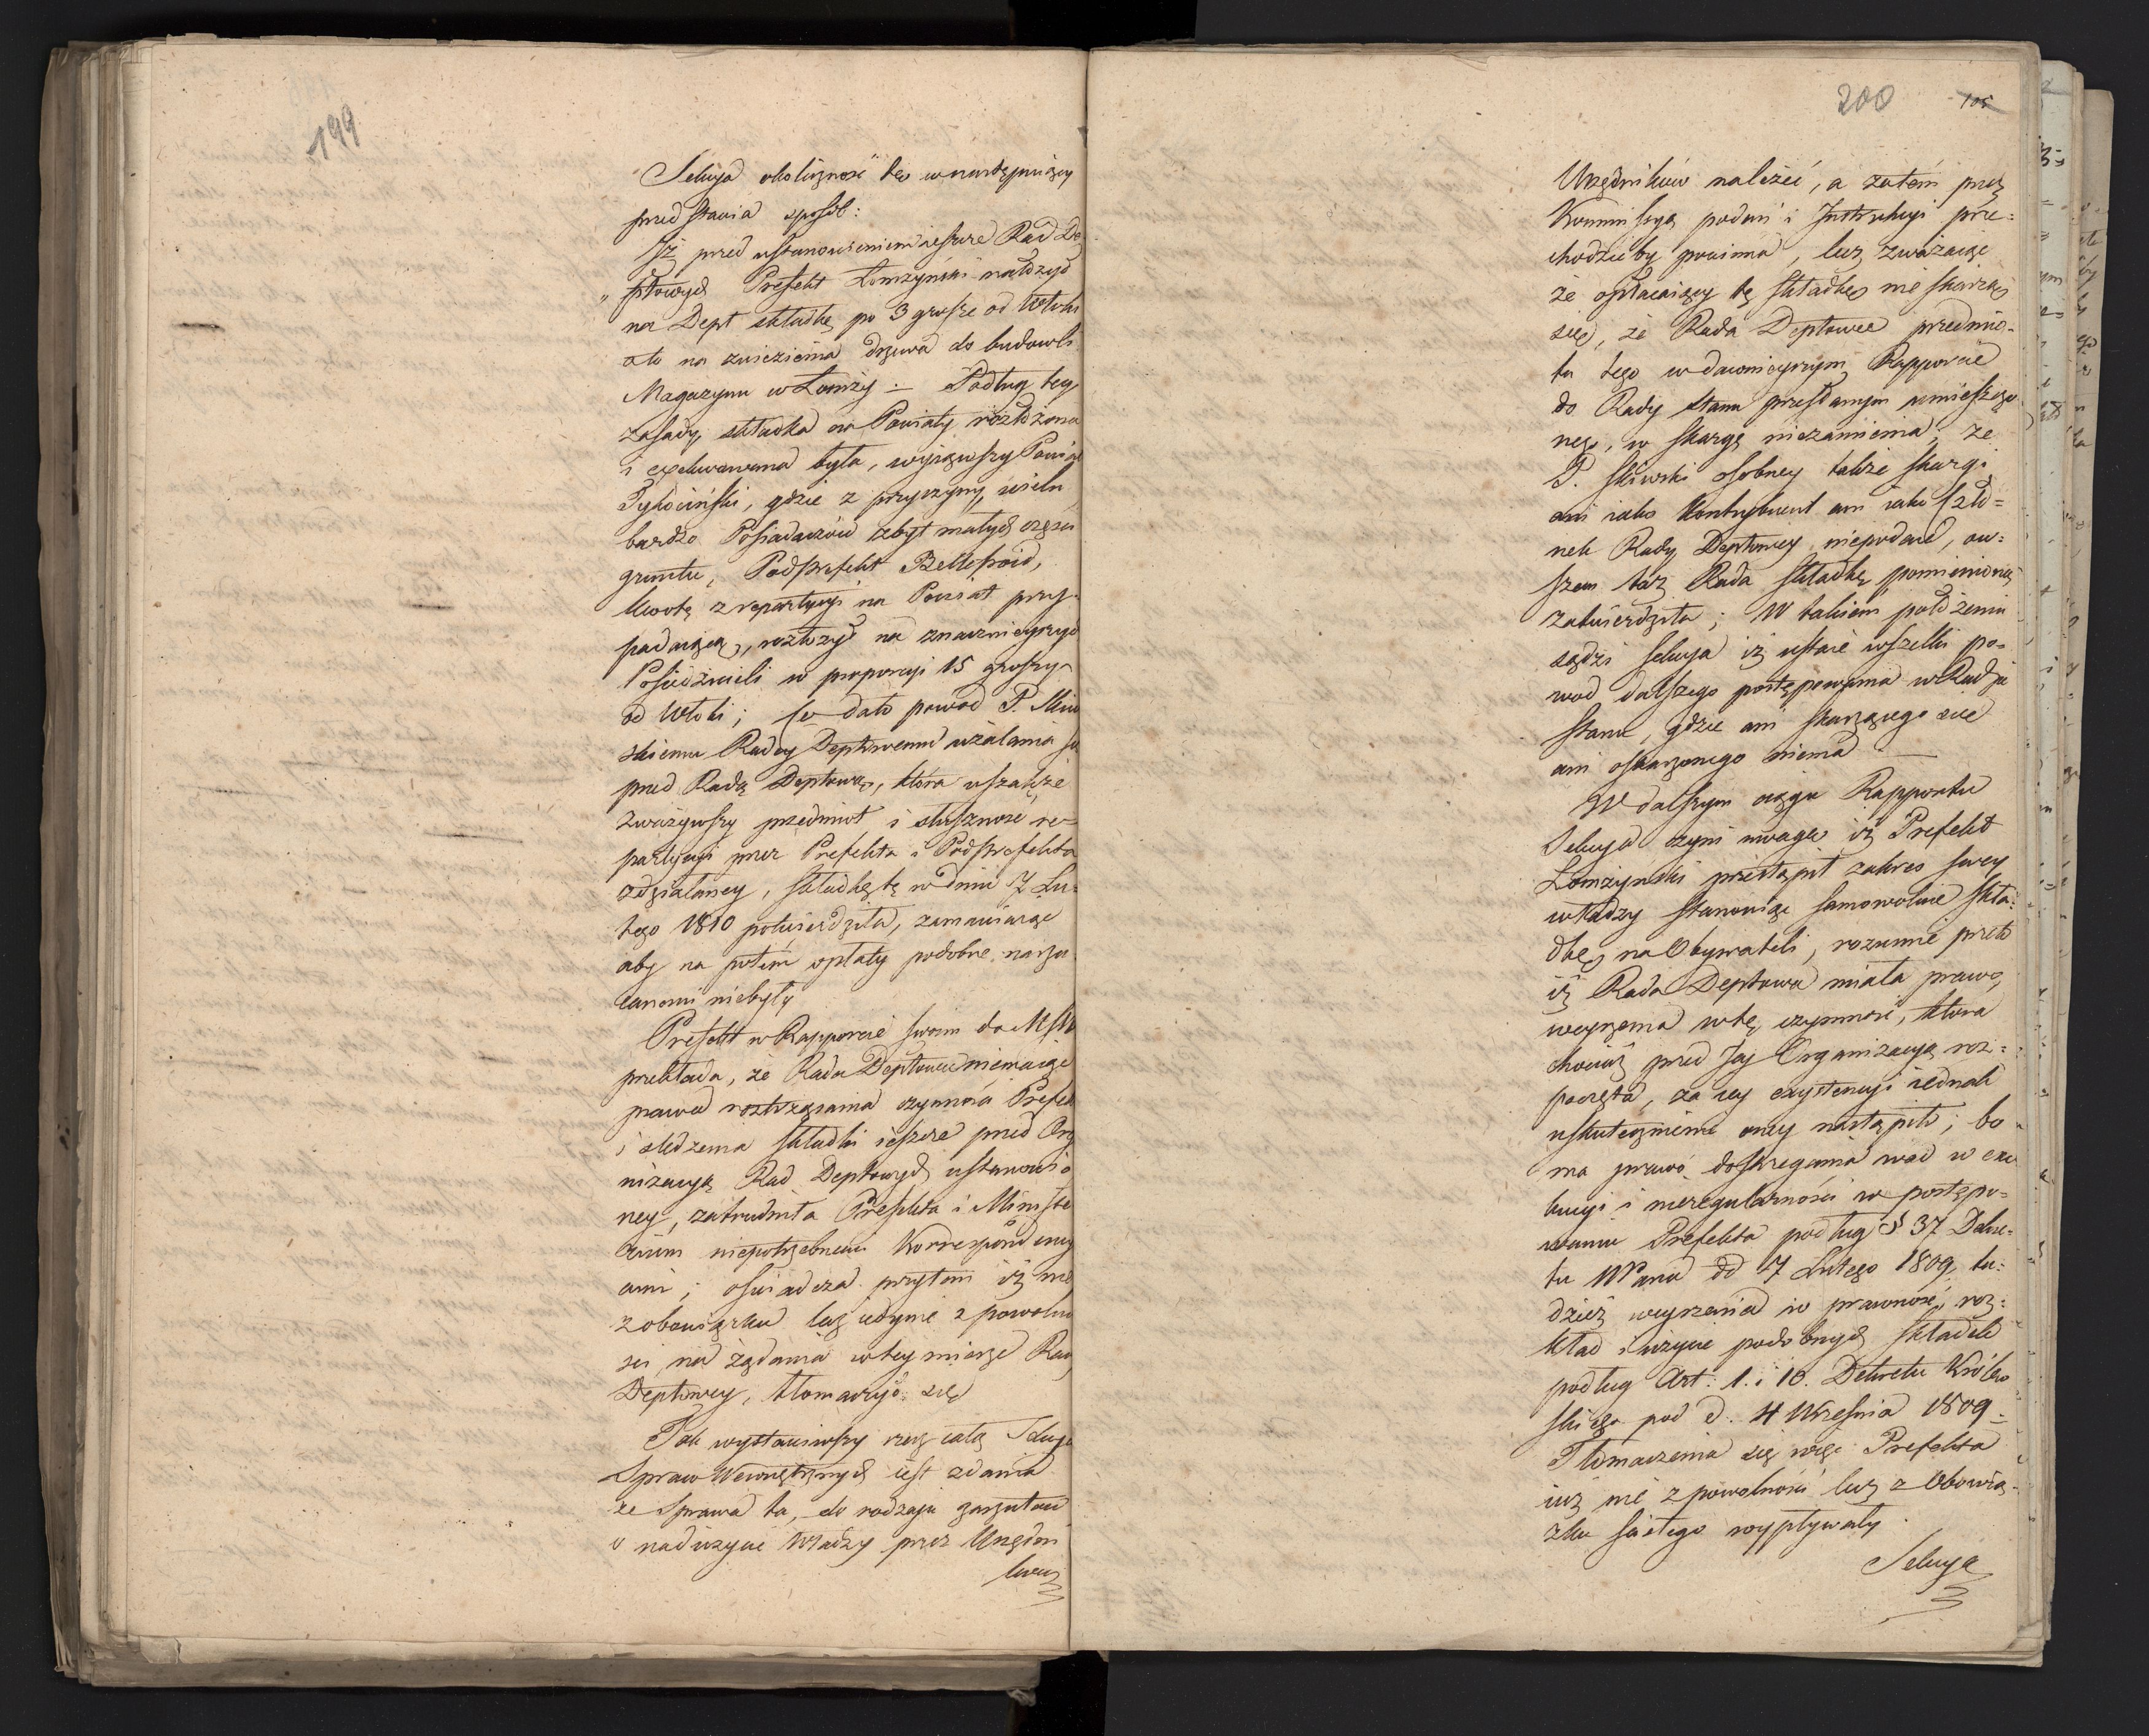 199
Sekcya okoliczność tę w następuiący
przedstawia sposób:
Iż przed ustanowieniem ieszcze Rad De
„ptowych Prefekt Łomżyński nałożył
na Dept składkę po 3 grosze od Włoki
a to na zwiezienia drzewa do budowli
Magazynu w Łomży. — Podług tey
zasady, składka na Powiaty rozłożona
i exekwowana była, wyiąwszy Powiat
Tykociński, gdzie z przyczyny, wielu
bardzo Posiadaczów zbyt małych części
gruntu, Podprefekt Bellefroid,
kwotę z repartycyi na Powiat przy-
padaiącą, rozłożył na znacznieyszych
Posiedzicieli w proporcyi 15 groszy
od Włoki; co dało powód P.
skiemu Radcy Deptowemu użalania się
przed Radą Deptową, która wszakże
zważywszy przedmiot i słuszność re-
partycyi przez Prefekta i Podprefekta
zdziałaney, składkę tę w dniu 7 Lu-
tego 1810 potwierdziła, zamawiaiąc
aby na potém opłaty podobne narzu
canemi niebyły
Prefekt w Rapporcie swoim do MSW
przekłada, że Rada Deptowa niemaiąc
prawa roztrząsania czynności Prefek
i śledzenia składki ieszcze przed Orga
nizacyą Rad Deptowych ustanowio
ney, zatrudniła Prefekta i Ministe
rium niepotrzebnemi Korrespondency
ami; oświadcza przytem iż nie
z obowiązku lecz iedynie z powolno
ści na żądania w tey mierze Rady
Deptowey, tłomaczył się
Tak wystawiwszy rzecz całą Sekcya
Spraw Wewnętrznych iest zdania
że Sprawa ta, do rodzaju zarzutów
o nadużycie Władzy przez Urzędni
ków
200
105
Urzędników należeć, a zatém przez
Kommissyą podań i Instrukcyi prze-
chodzićby powinna, lecz zważaiąc
że opłacaiący tę składkę nie skarżą
się, że Rada Deptowa przedmio-
tu tego w dawnieyszym Rapporcie
do Rady Stanu przesłanym umieszczo
nego, w skargę niezamienia; że
P. Sliwski osobney także skargi
ani iako Kontrybuent ani iako Czło-
nek Rady Deptowey niepodał, ow-
szem taż Rada składkę pomienioną
zatwierdziła; W takiém położeniu
sądzi Sekcya iż ustaie wszelki po-
wód dalszego postępowania w Radzie
Stanu, gdzie ani skarżącego się
ani oskarżonego niema —
W dalszym ciągu Rapportu
Sekcya czyni uwagę iż Prefekt
Łomżyński przestąpił zakres swey
władzy stanowiąc samowolnie skła-
dkę na Obywateli, rozumie przeto
iż Rada Deptowa miała prawo,
weyrzenia w tę czynność, która
chociaż przed Jej Organizacyą roz-
poczęta, za iey exystencyi iednak
uskutecznienie oney nastąpiło; bo
ma prawo dostrzegania wad w exe
kucyi i nieregularności w postępo-
waniu Prefekta podług § 37 Dekre-
tu NPana dd 7 Lutego 1809, tu-
dzież weyrzenia w prawność, roz-
kład i użycie podobnych składek
podług Art: 1. i 10. Dekretu Królew
skiego pod d. 4 Września 1809 —
Tłomaczenia się więc Prefekta
iuż nie z powolności lecz z Obowią-
zku ścisłego wypływały.
Sekcya